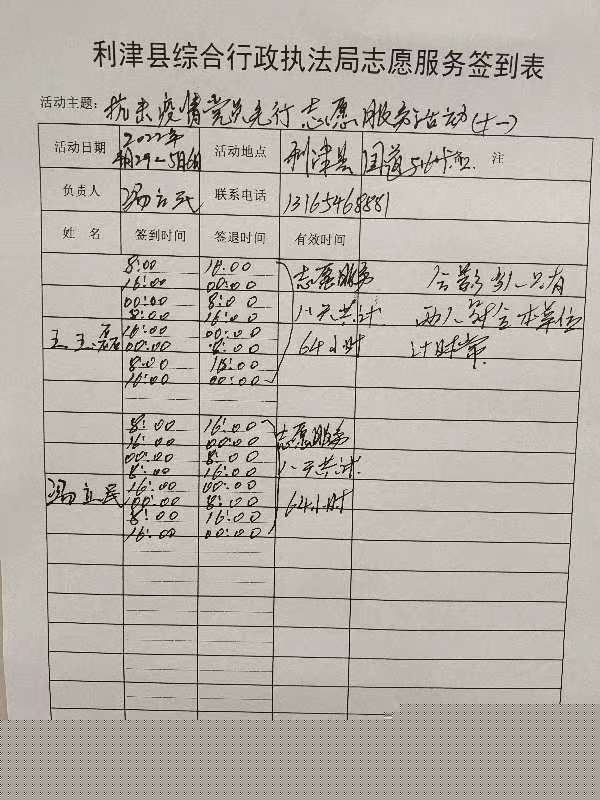 利津县综合行政执法局志愿服务签到表
活动主题：抗击疫情党员先行志愿服务活动（十一）
活动日期 2022年 4月29~5月6日 活动地点 利津县 国道516 备 注
负责人 冯立民 联系电话 13165468881
姓 名 签到时间 签退时间 有效时间
8:00 16:00 志愿服务
16:00 00:00
00:00 8:00 八天共计 两人 本单位
8:00 16:00
王玉磊 16:00 00:00 64小时
00:00 8:00
8:00 16:00
16:00 00:00
8:00 16:00 志愿服务
16:00 00:00
00:00 8:00 八天共计
8:00 16:00
冯立民 16:00 00:00 64小时
00:00 8:00
8:00 16:00
16:00 00:00